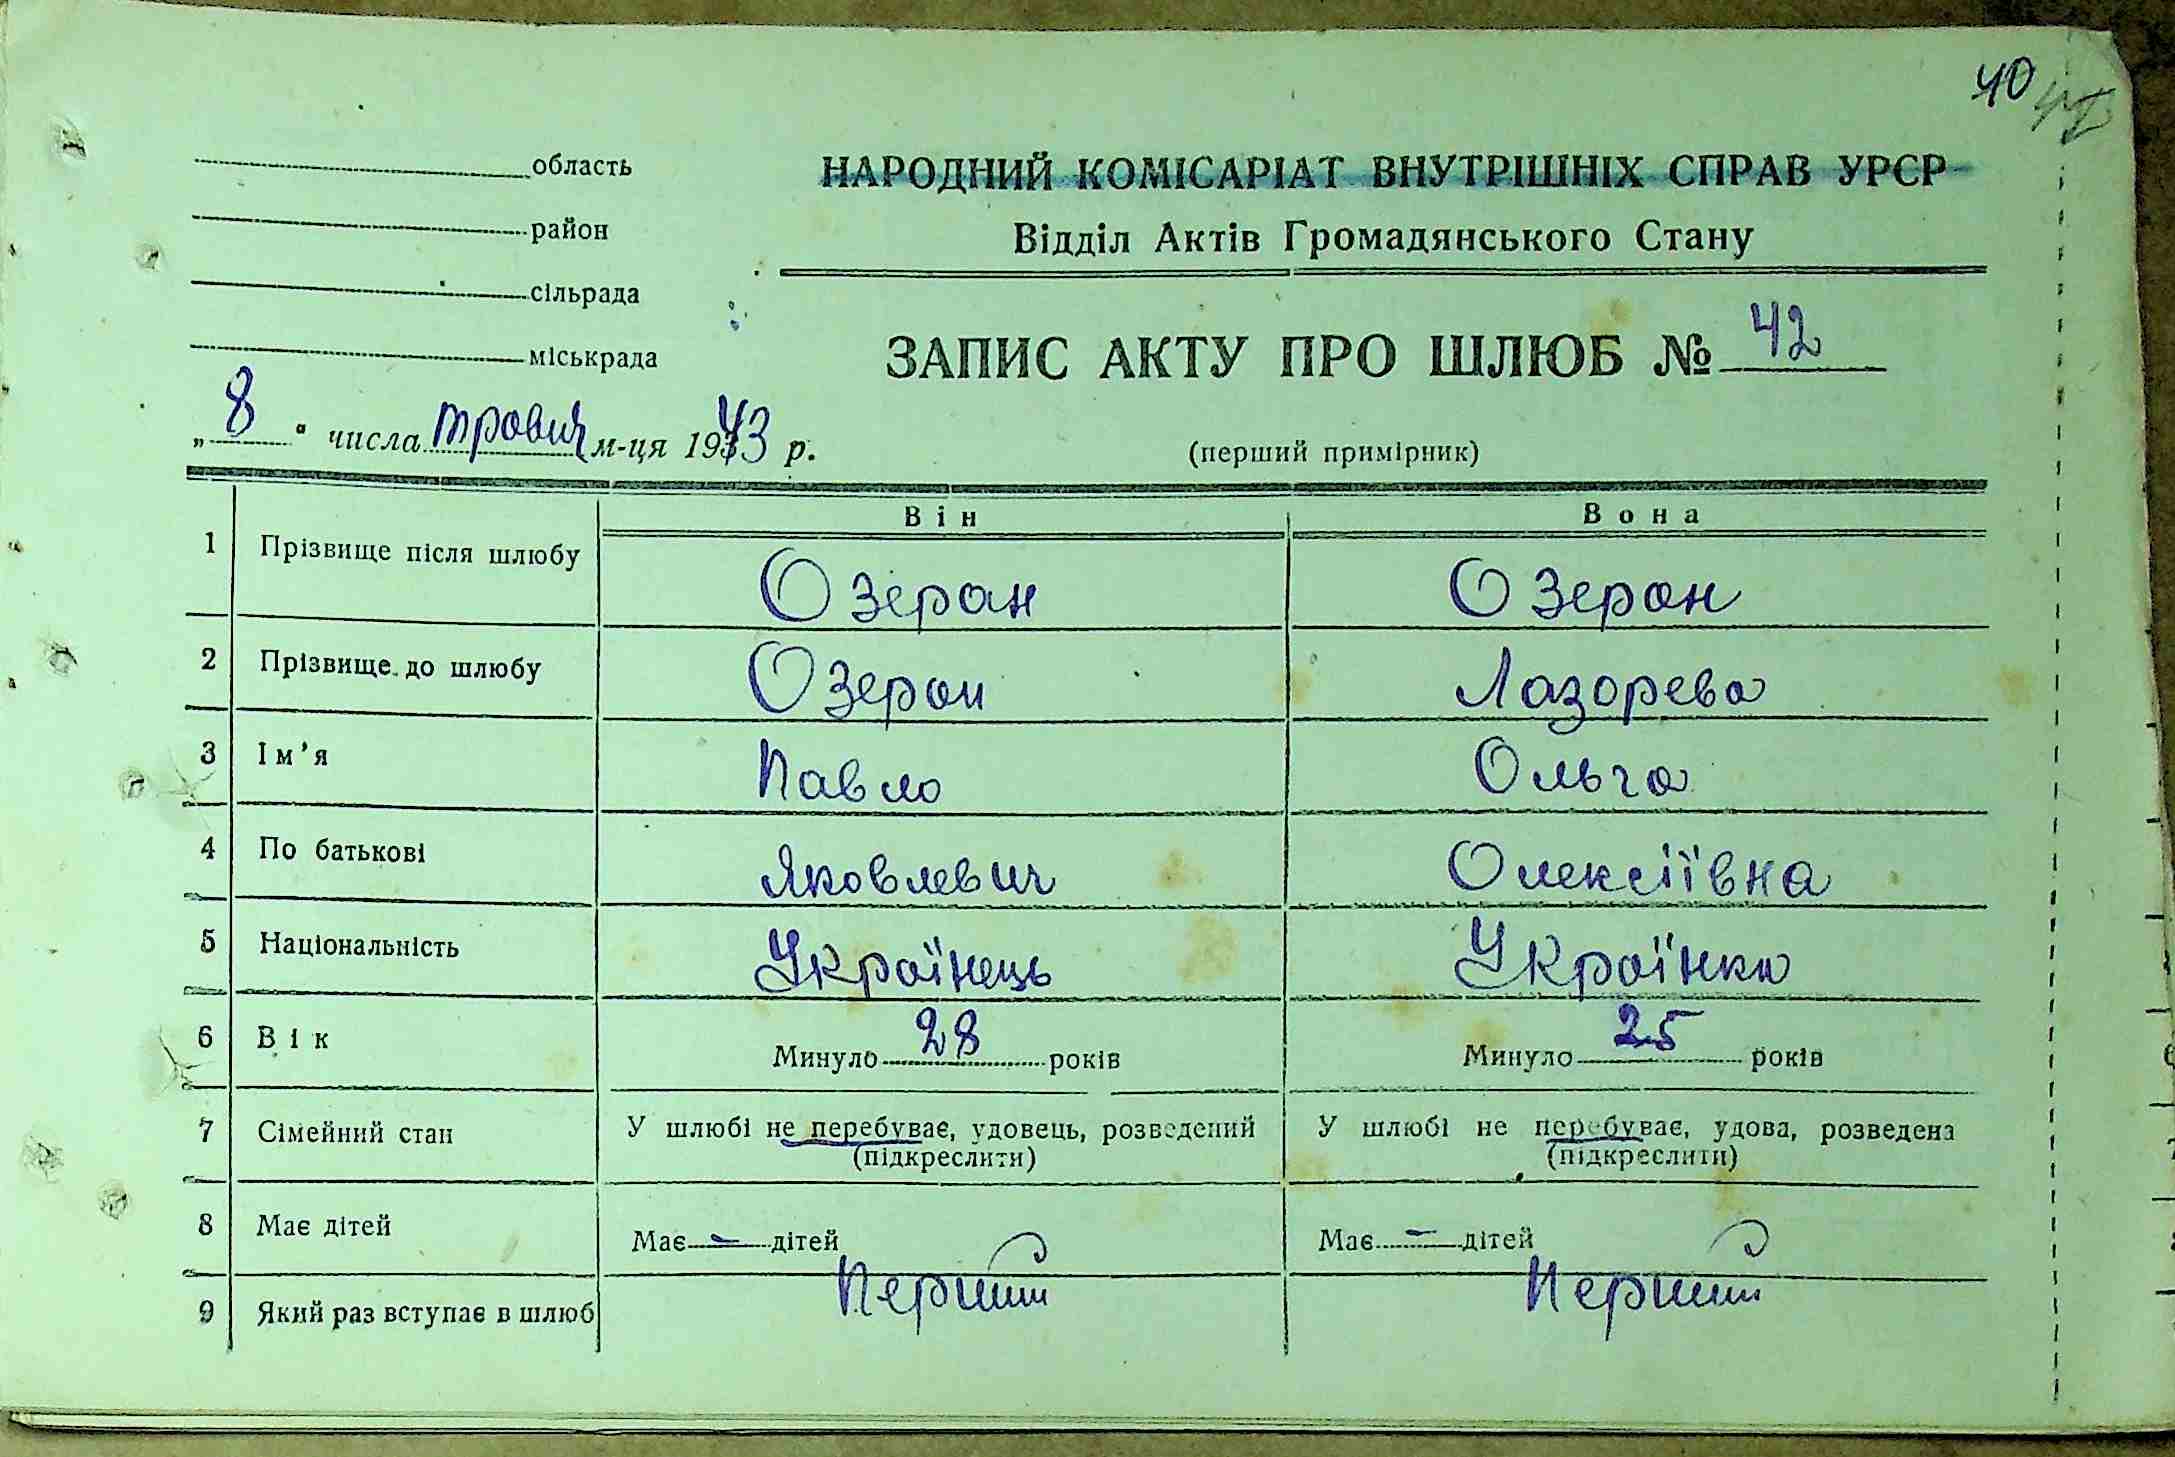 40
область
район
сільрада
міськрада
НАРОДНИЙ КОМІСАРІАТ ВНУТРІШНІХ СПРАВ УРСР
Відділ Актів Громадянського Стану
ЗАПИС АКТУ ПРО ШЛЮБ № 42
„ 8 " числа травня м-ця 1943 р.
(перший примірник)
Він Вона
1 Прізвище після шлюбу Озеран Озеран
2 Прізвище до шлюбу Озеран Лазорева
3 Ім'я Павло Ольга
4 По батькові Яковлевич Олексіївна
5 Національність Українець Українка
6 Вік Минуло 28 років Минуло 25 років
7 Сімейний стан У шлюбі не перебуває, удовець, розведений У шлюбі не перебуває, удова, розведена
(підкреслити) (підкреслити)
8 Має дітей Має - дітей Має - дітей
9 Який раз вступає в шлюб Перший Перший